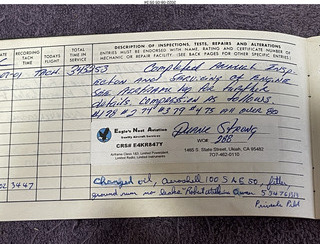 DATE
RECORDING TACH TIME
TODAY'S FLIGHT
TOTAL TIME IN SERVICE
DESCRIPTION OF INSPECTIONS, TESTS, REPAIRS AND ALTERATIONS
ENTRIES MUST BE ENDORSED WITH NAME, RATING AND CERTIFICATE NUMBER OF
MECHANIC OR REPAIR FACILITY. (SEE BACK PAGES FOR OTHER SPECIFIC ENTRIES)
TACH 3432.53 Completed Annual Insp-
ection and Servicing of Engine
See Airframe log for
details Compression as follows.
#1 78 #2 74 #3 79 #4 75 all over 80
Eagle's Nest Aviation
Quality Aircraft Service
CRS# E4KR847Y
Airframe Class I&III, Limited Powerplant
Limited Radio, Limited Instruments
Duane Strong
WC# 200
1465 S. State Street, Ukiah, CA 95482
707-462-0110
3447 Changed oil, Aeroshell 100 SAE 50, filter,
ground run no leaks
Private Pilot